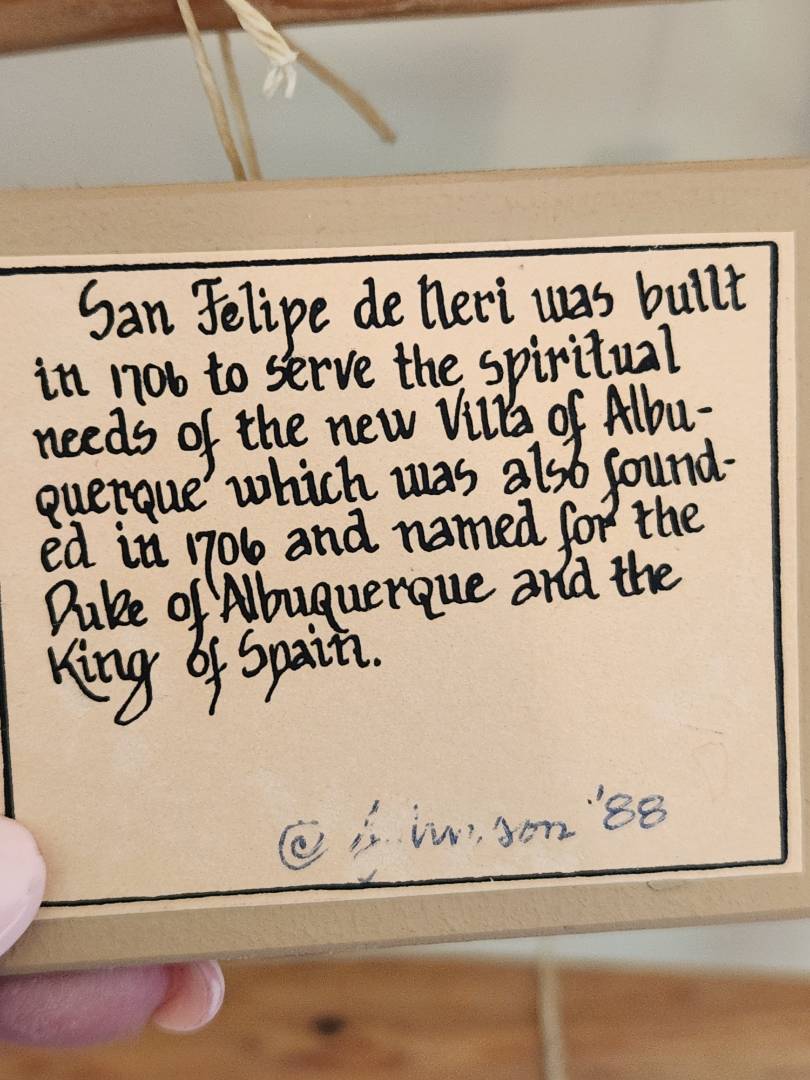 San Felipe de Neri was built
in 1706 to serve the spiritual
needs of the new Villa of Albu-
querque which was also found-
ed in 1706 and named for the
Duke of Albuquerque and the
King of Spain.
© Johnson '88